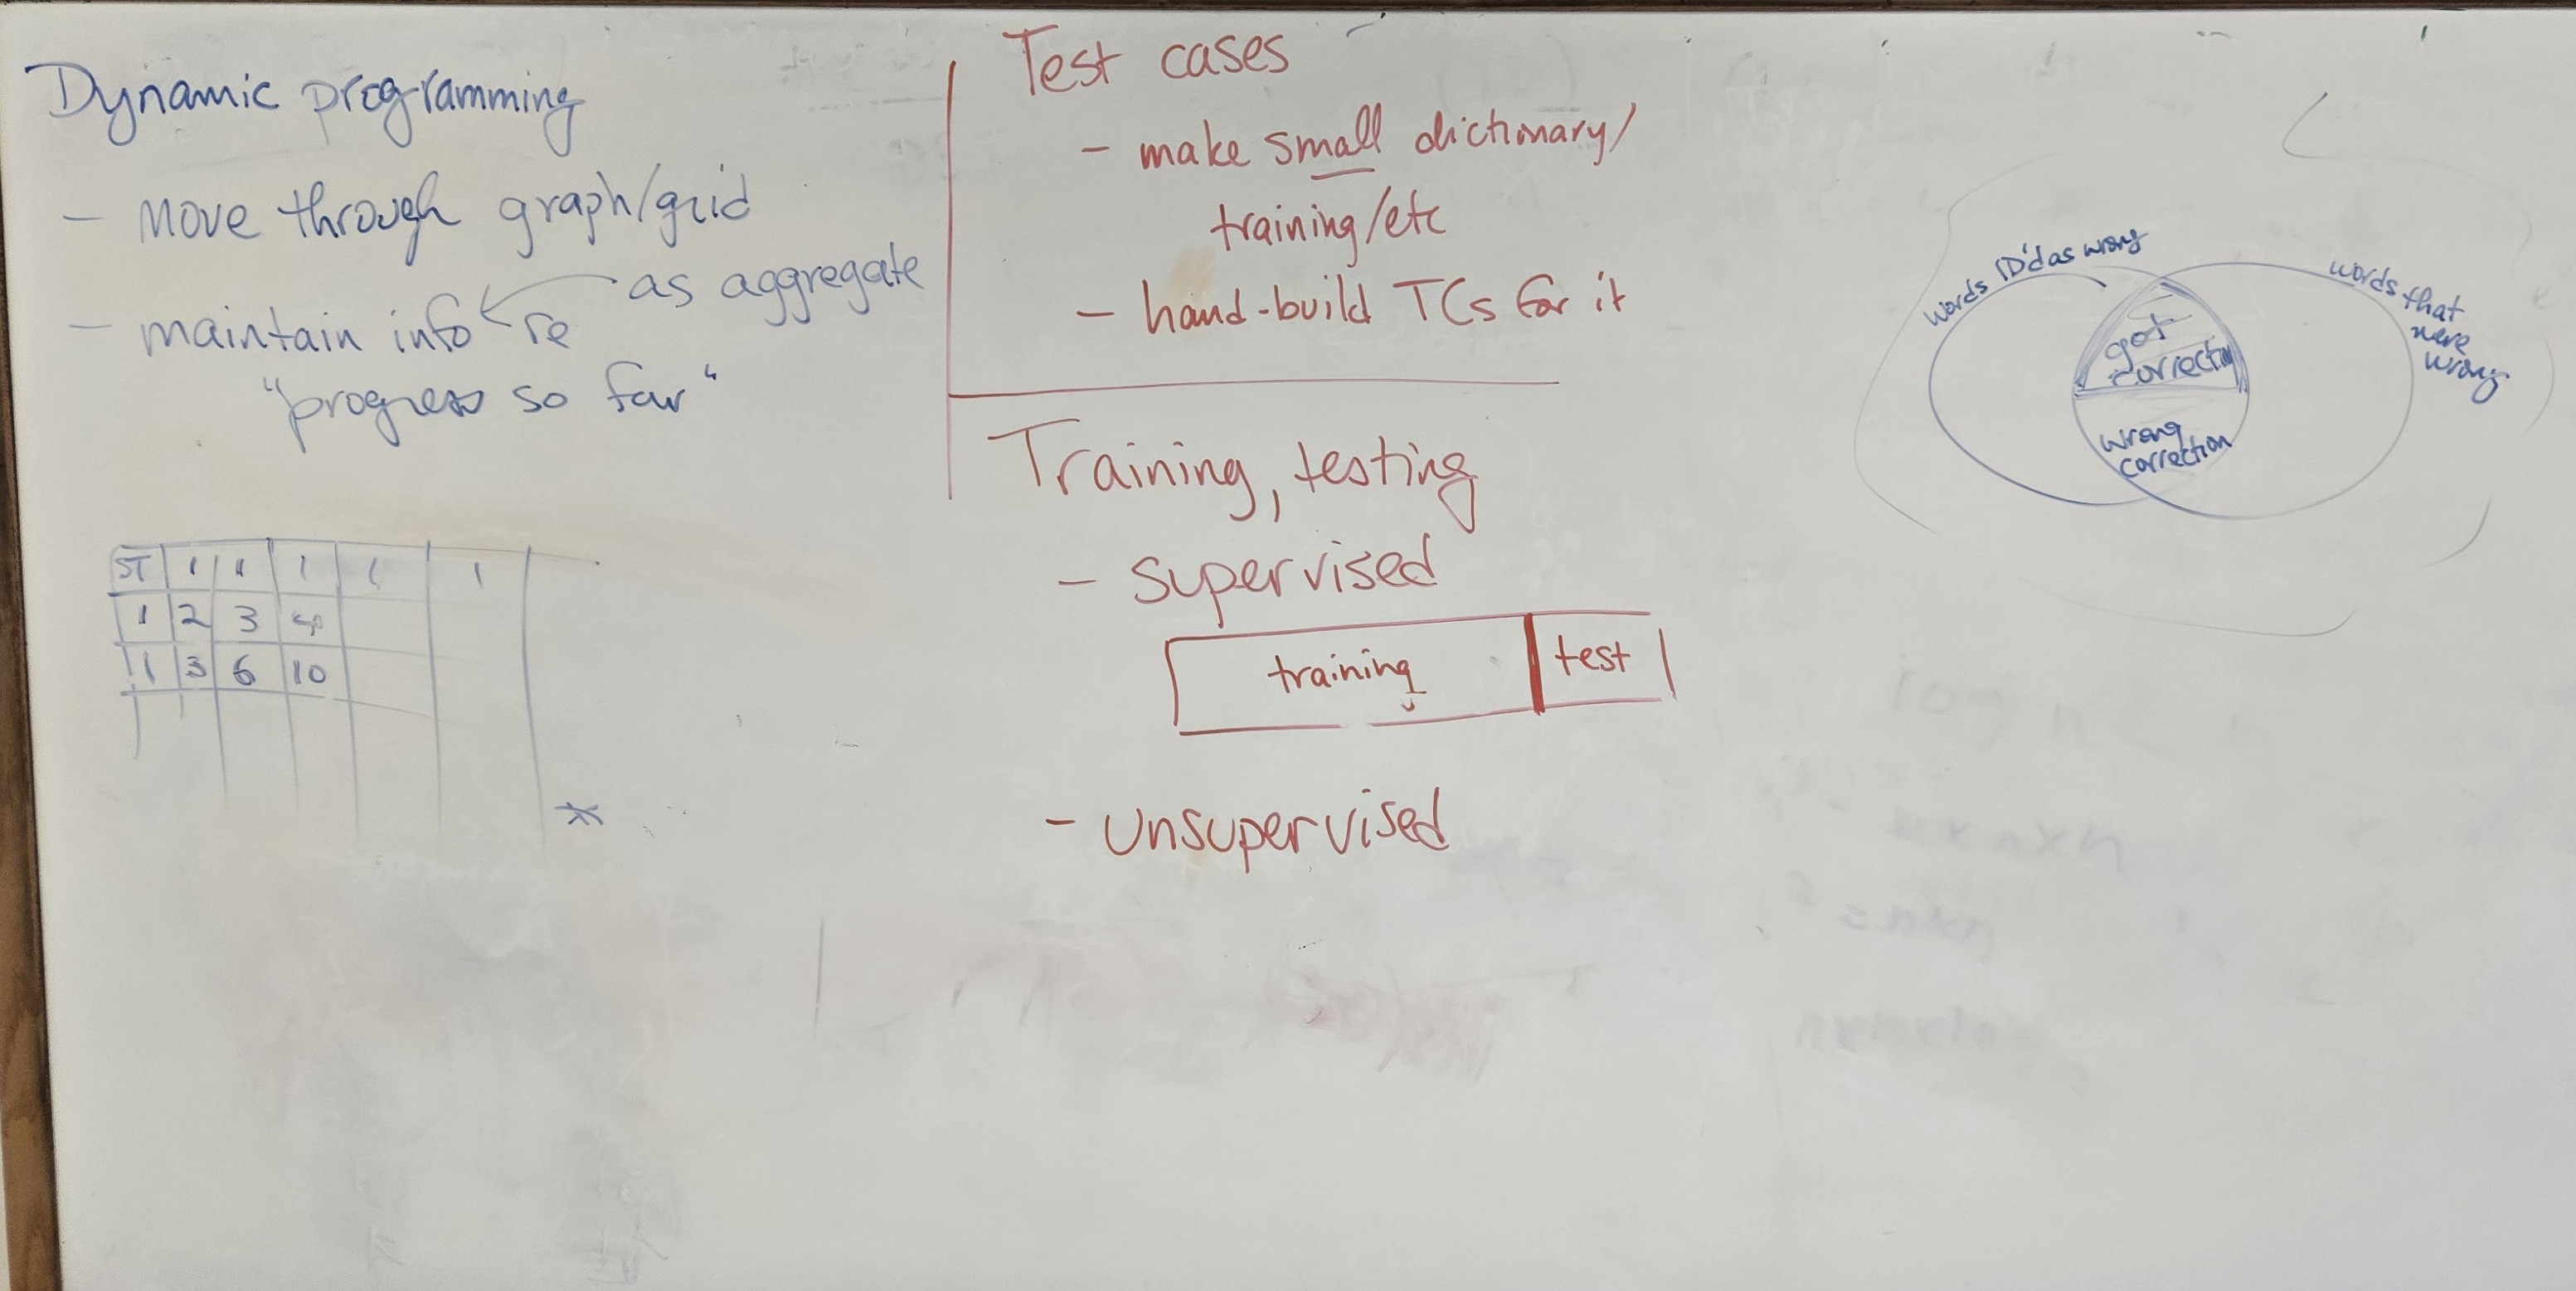 Dynamic programming
- move through graph/grid
as aggregate
- maintain info re
"progress so far"
ST 1 1 1 1 1
1 2 3 4
1 3 6 10
*
Test cases
- make small dictionary/
training/etc
- hand-build TCs for it
Training, testing
- supervised
training test
- unsupervised
words ID'd as wrong
words that
were
wrong
got
correctn
wrong
correction